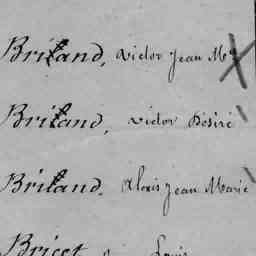 Briland, Victor Jean M
Briland, victor Désiré
Briland, Alexis Jean Marie
Bricet Louis